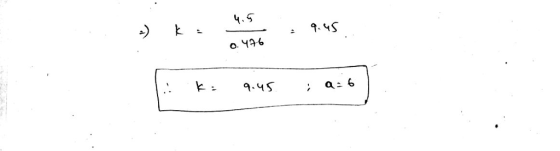 =) k = 4.5 / 0.476 = 9.45
∴ k = 9.45 ; a = 6